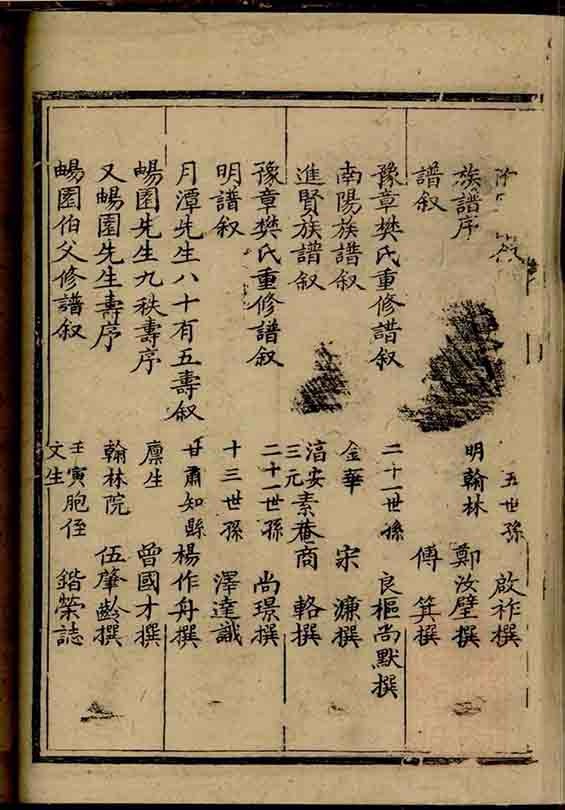 五世孫 啟祚撰
族譜序 明翰林 鄭汝璧撰
譜叙 傅箕撰
豫章樊氏重修譜叙 二十一世孫 良樞尚默撰
南陽族譜叙 金華 宋濂撰
進賢族譜叙 淳安素菴商 三元 輅撰
豫章樊氏重修譜叙 二十一世孫 尚璟撰
明譜叙 十三世孫 澤達識
月潭先生八十有五壽叙 甘肅知縣 楊作舟撰
暢園先生九秩壽序 廩生 曾國才撰
又暢園先生壽序 翰林院 伍肇齡撰
暢園伯父修譜叙 壬寅胞侄 文生 鍇榮誌